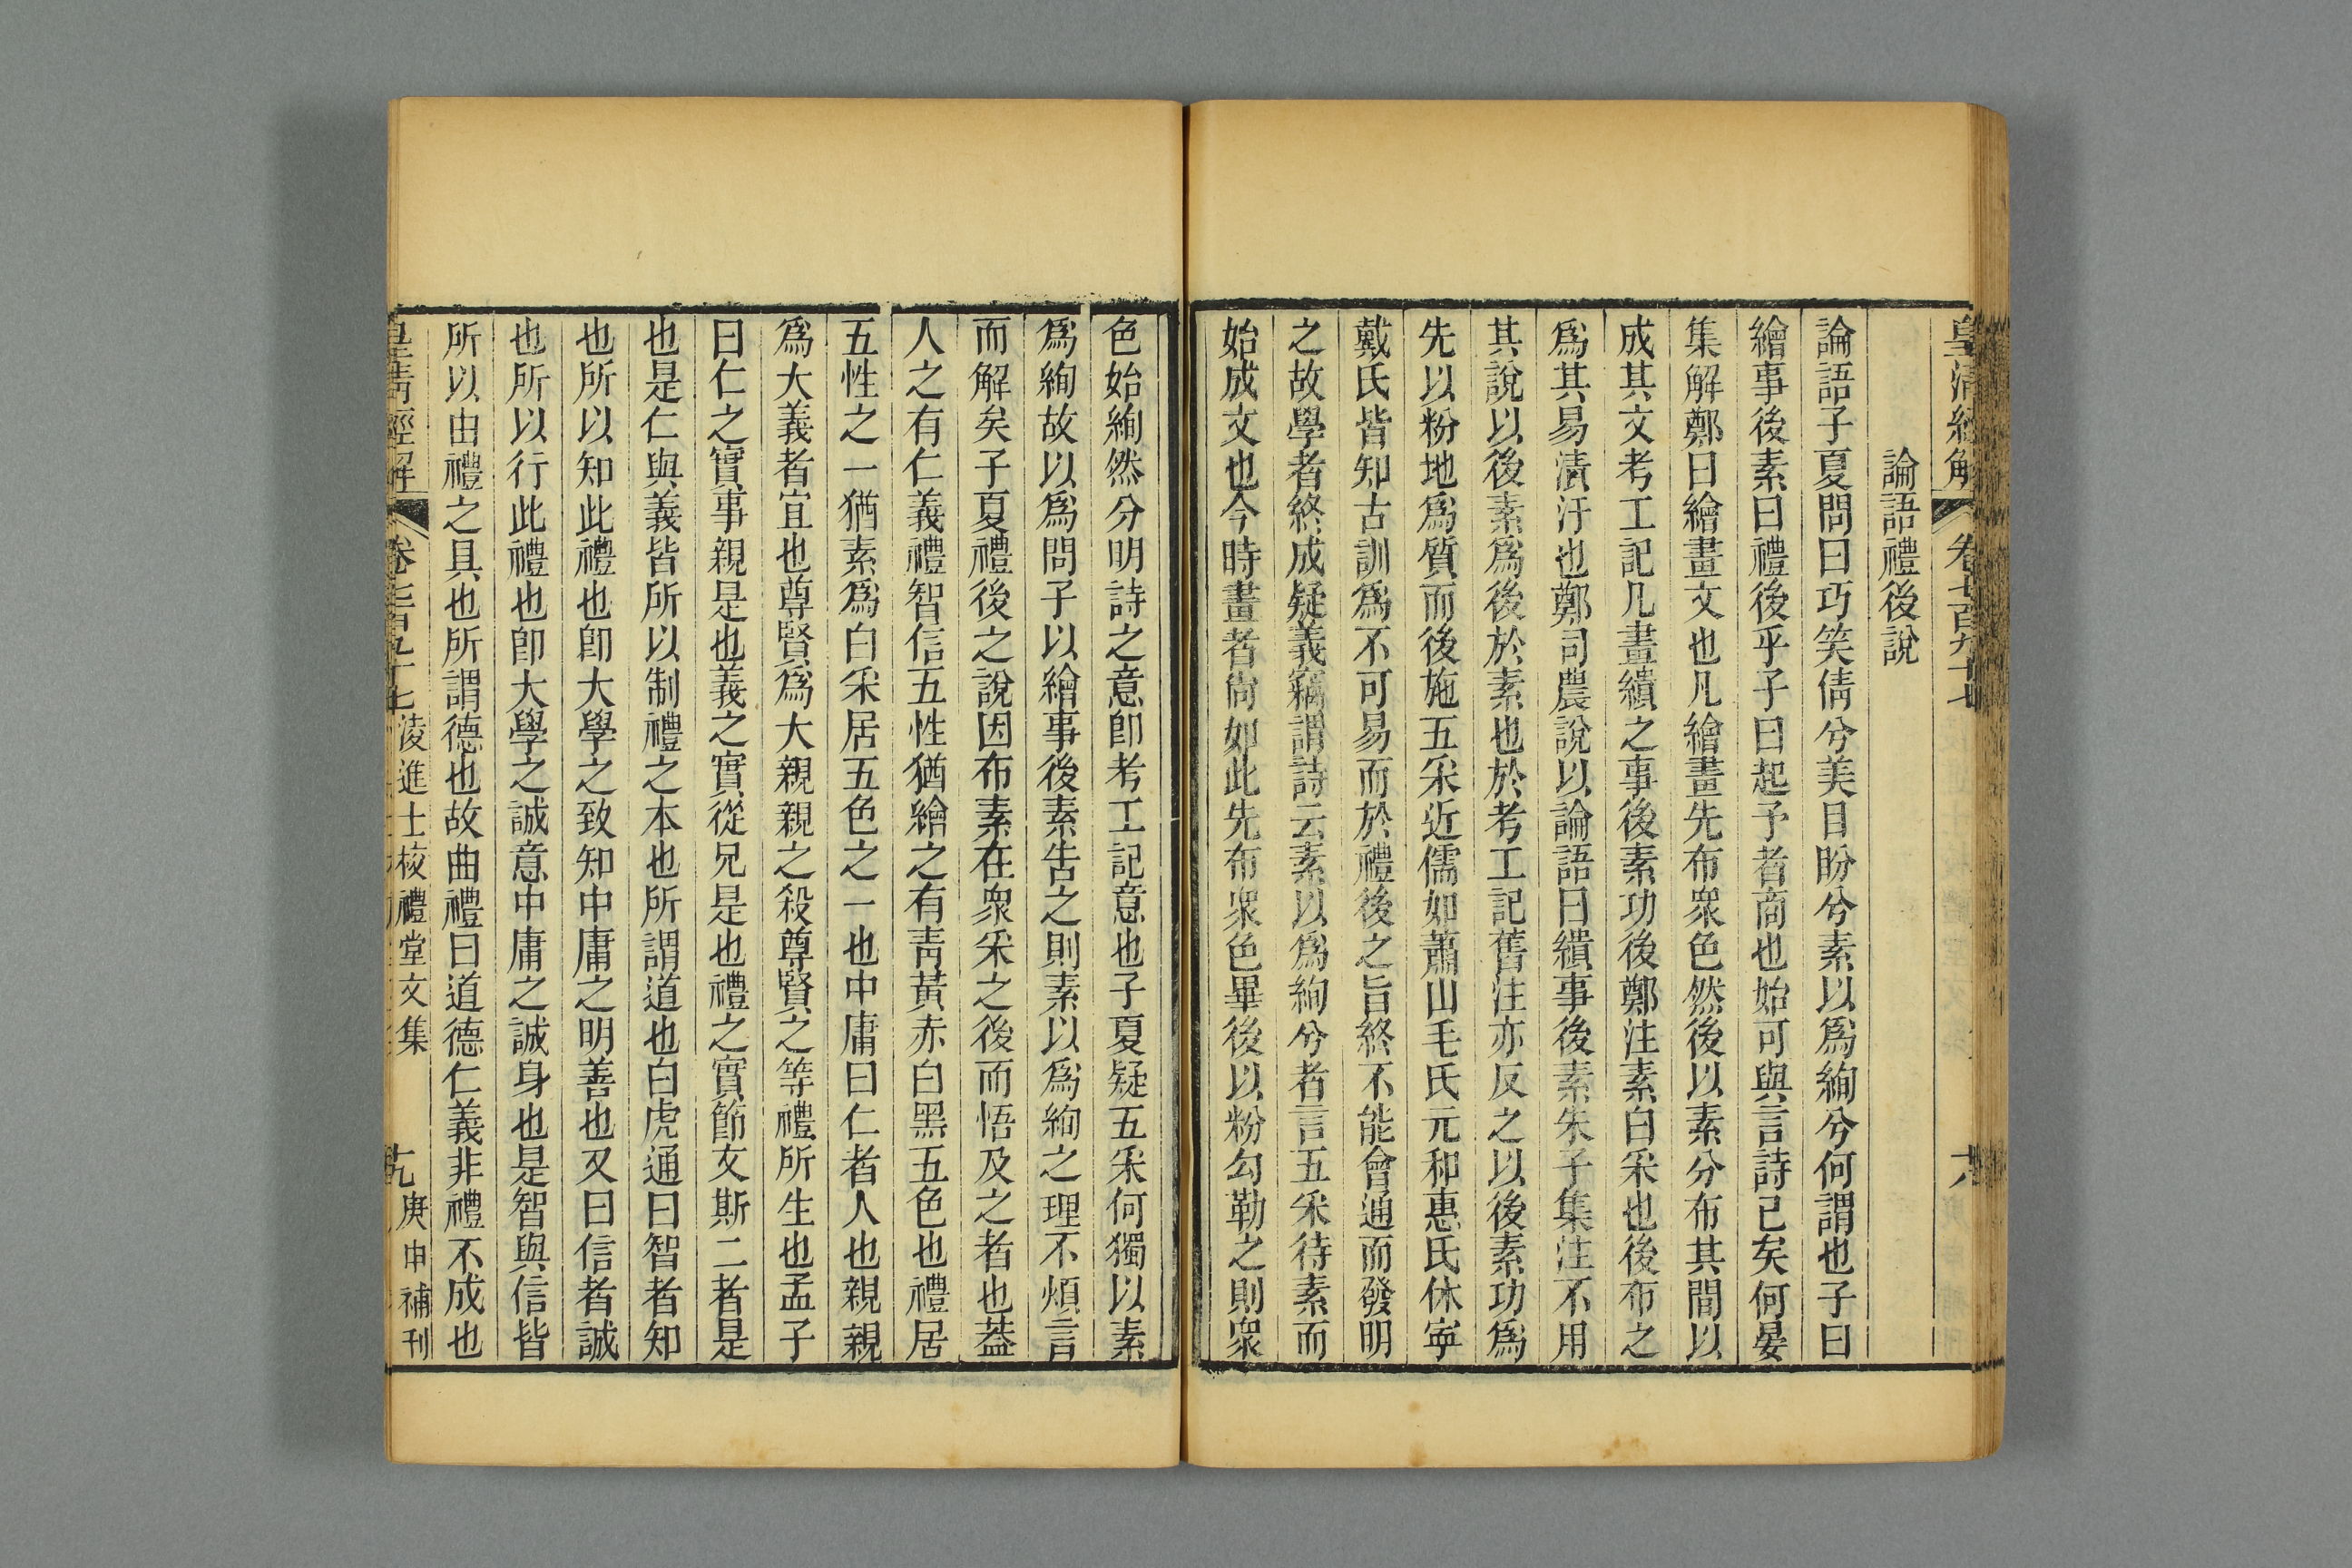 皇清經解 卷七百九十七 六
論語禮後說
論語子夏問曰巧笑倩兮美目盼兮素以爲絢兮何謂也子曰
繪事後素曰禮後乎子曰起予者商也始可與言詩已矣何晏
集解鄭曰繪畫文也凡繪畫先布衆色然後以素分布其間以
成其文考工記凡畫繢之事後素功後鄭注素白采也後布之
爲其易漬汙也鄭司農說以論語曰繢事後素朱子集注不用
其說以後素爲後於素也於考工記舊注亦反之以後素功爲
先以粉地爲質而後施五采近儒如蕭山毛氏元和惠氏休寧
戴氏皆知古訓爲不可易而於禮後之旨終不能會通而發明
之故學者終成疑義竊謂詩云素以爲絢兮者言五采待素而
始成文也今時畫者尙如此先布衆色畢後以粉勾勒之則衆
色始絢然分明詩之意卽考工記意也子夏疑五采何獨以素
爲絢故以爲問子以繪事後素告之則素以爲絢之理不煩言
而解矣子夏禮後之說因布素在衆采之後而悟及之者也葢
人之有仁義禮智信五性猶繪之有靑黃赤白黑五色也禮居
五性之一猶素爲白采居五色之一也中庸曰仁者人也親親
爲大義者宜也尊賢爲大親親之殺尊賢之等禮所生也孟子
曰仁之實事親是也義之實從兄是也禮之實節文斯二者是
也是仁與義皆所以制禮之本也所謂道也白虎通曰智者知
也所以知此禮也卽大學之致知中庸之明善也又曰信者誠
也所以行此禮也卽大學之誠意中庸之誠身也是智與信皆
所以由禮之具也所謂德也故曲禮曰道德仁義非禮不成也
皇淸經解 卷七百九十七 淩進士校禮堂文集 九 庚申補刊